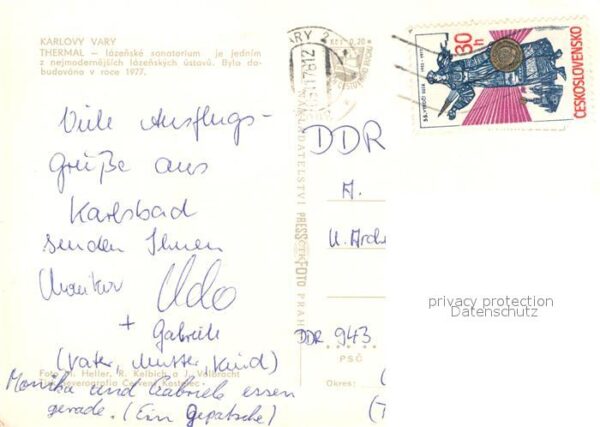 KARLOVY VARY
THERMAL – lázeňské sanatorium je jedním
z nejmodernějších lázeňských ústavů. Bylo do-
budováno v roce 1977.
Viele Ausflugs-
grüße aus
Karlsbad
senden Ihnen
Monika Udo
+ Gabriele
(Vater, Mutter, Kind)
Monika und Gabriele essen
gerade. (Ein Gepatsche)
Foto M. Heller, R. Kelbich a J. Volbracht
Červený Kostelec
NAKLADATELSTVÍ PRESSFOTO PRAHA
ČTK
VARY 2
Kčs 0,20
30h
ČESKOSLOVENSKO
DDR
A.
DDR 943
PSČ
Okres:
privacy protection
Datenschutz